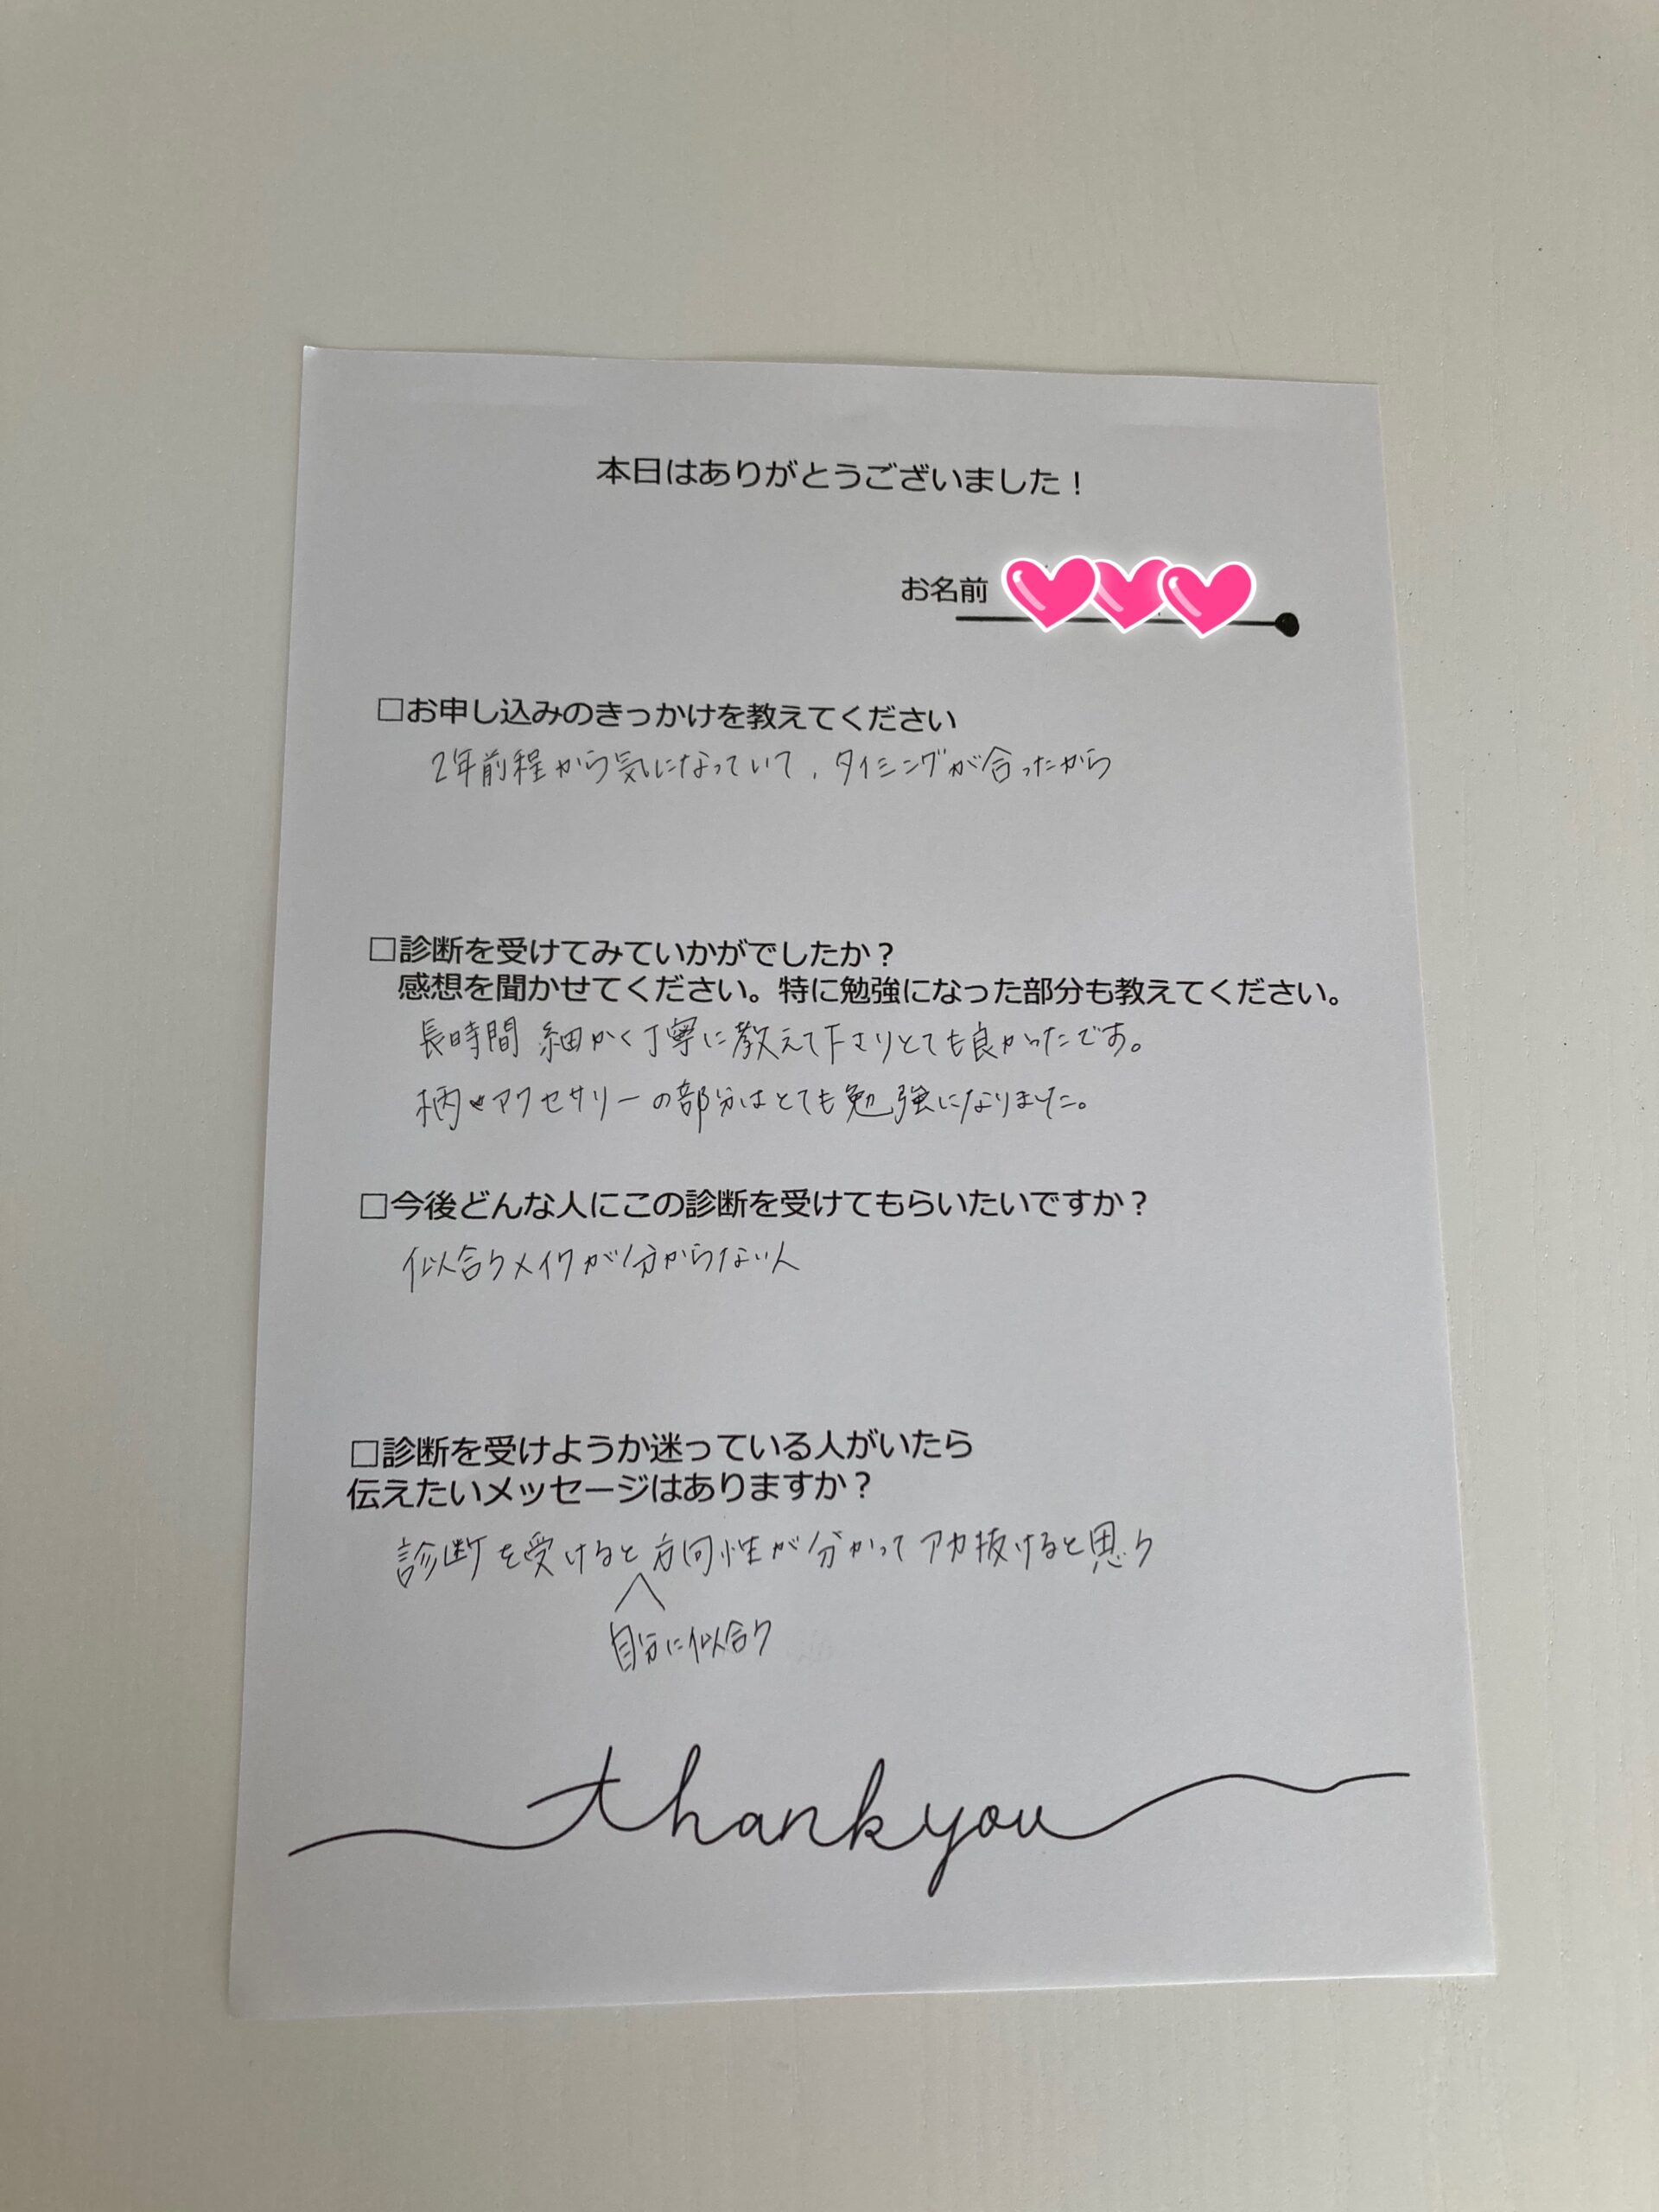 本日はありがとうございました！
お名前
□お申し込みのきっかけを教えてください
2年前程から気になっていて、タイミングが合ったから
□診断を受けてみていかがでしたか？
感想を聞かせてください。特に勉強になった部分も教えてください。
長時間 細かく丁寧に教えて下さりとても良かったです。
柄やアクセサリーの部分はとても勉強になりました。
□今後どんな人にこの診断を受けてもらいたいですか？
似合うメイクが分からない人
□診断を受けようか迷っている人がいたら
伝えたいメッセージはありますか？
診断を受けると方向性が分かってアカ抜けると思う
自分に似合う
thank you